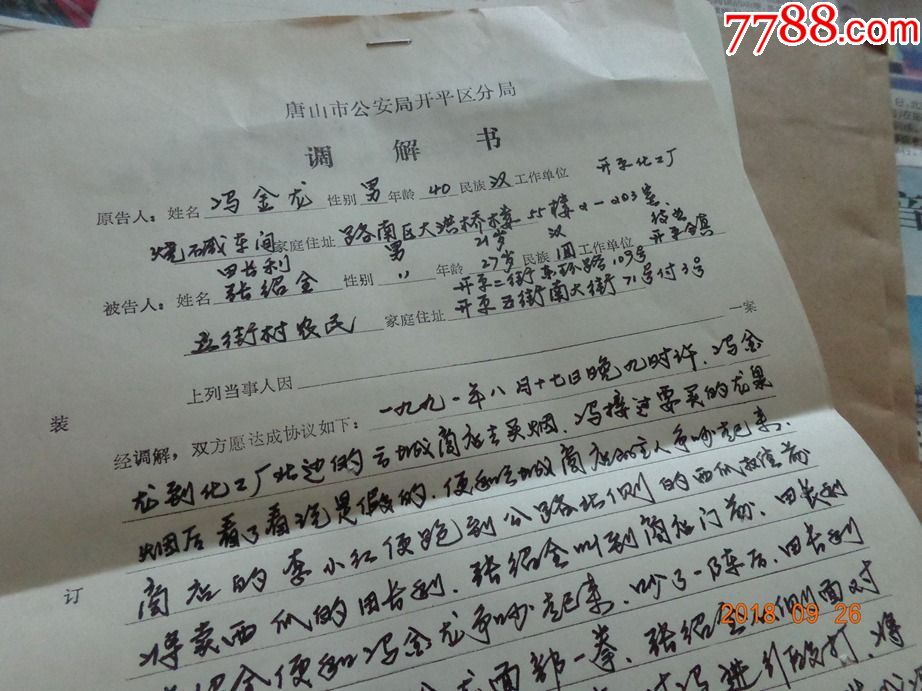 7788.com
唐山市公安局开平区分局
调解书
开平化工厂
原告人：姓名 冯金龙 性别 男 年龄 40 民族 汉 工作单位
烧碱车间 家庭住址 路南区大洪桥楼55楼2-203号
田长利 男 21岁 汉
被告人：姓名 张绍金 性别 〃 年龄 27岁 民族 回 工作单位 开平镇
开平二街东环路109号
五街村农民 家庭住址 开平五街南大街71号付3号
上列当事人因 一案
经调解，双方愿达成协议如下：一九九一年八月十七日晚九时许，冯金
龙到化工厂北边的 城商店去买烟，冯接过要买的龙泉
烟后看了看说是假的，便和 城商店的主人争吵起来，
商店的李小红便跑到公路北侧的西瓜 前
将卖西瓜的田长利，张绍金叫到商店门前，田长利
张绍金便和冯金龙争吵起来，吵了一阵后，田长利
龙面部一拳，张绍金从侧面对
冯进行殴打，将
装
订
2018 09 26